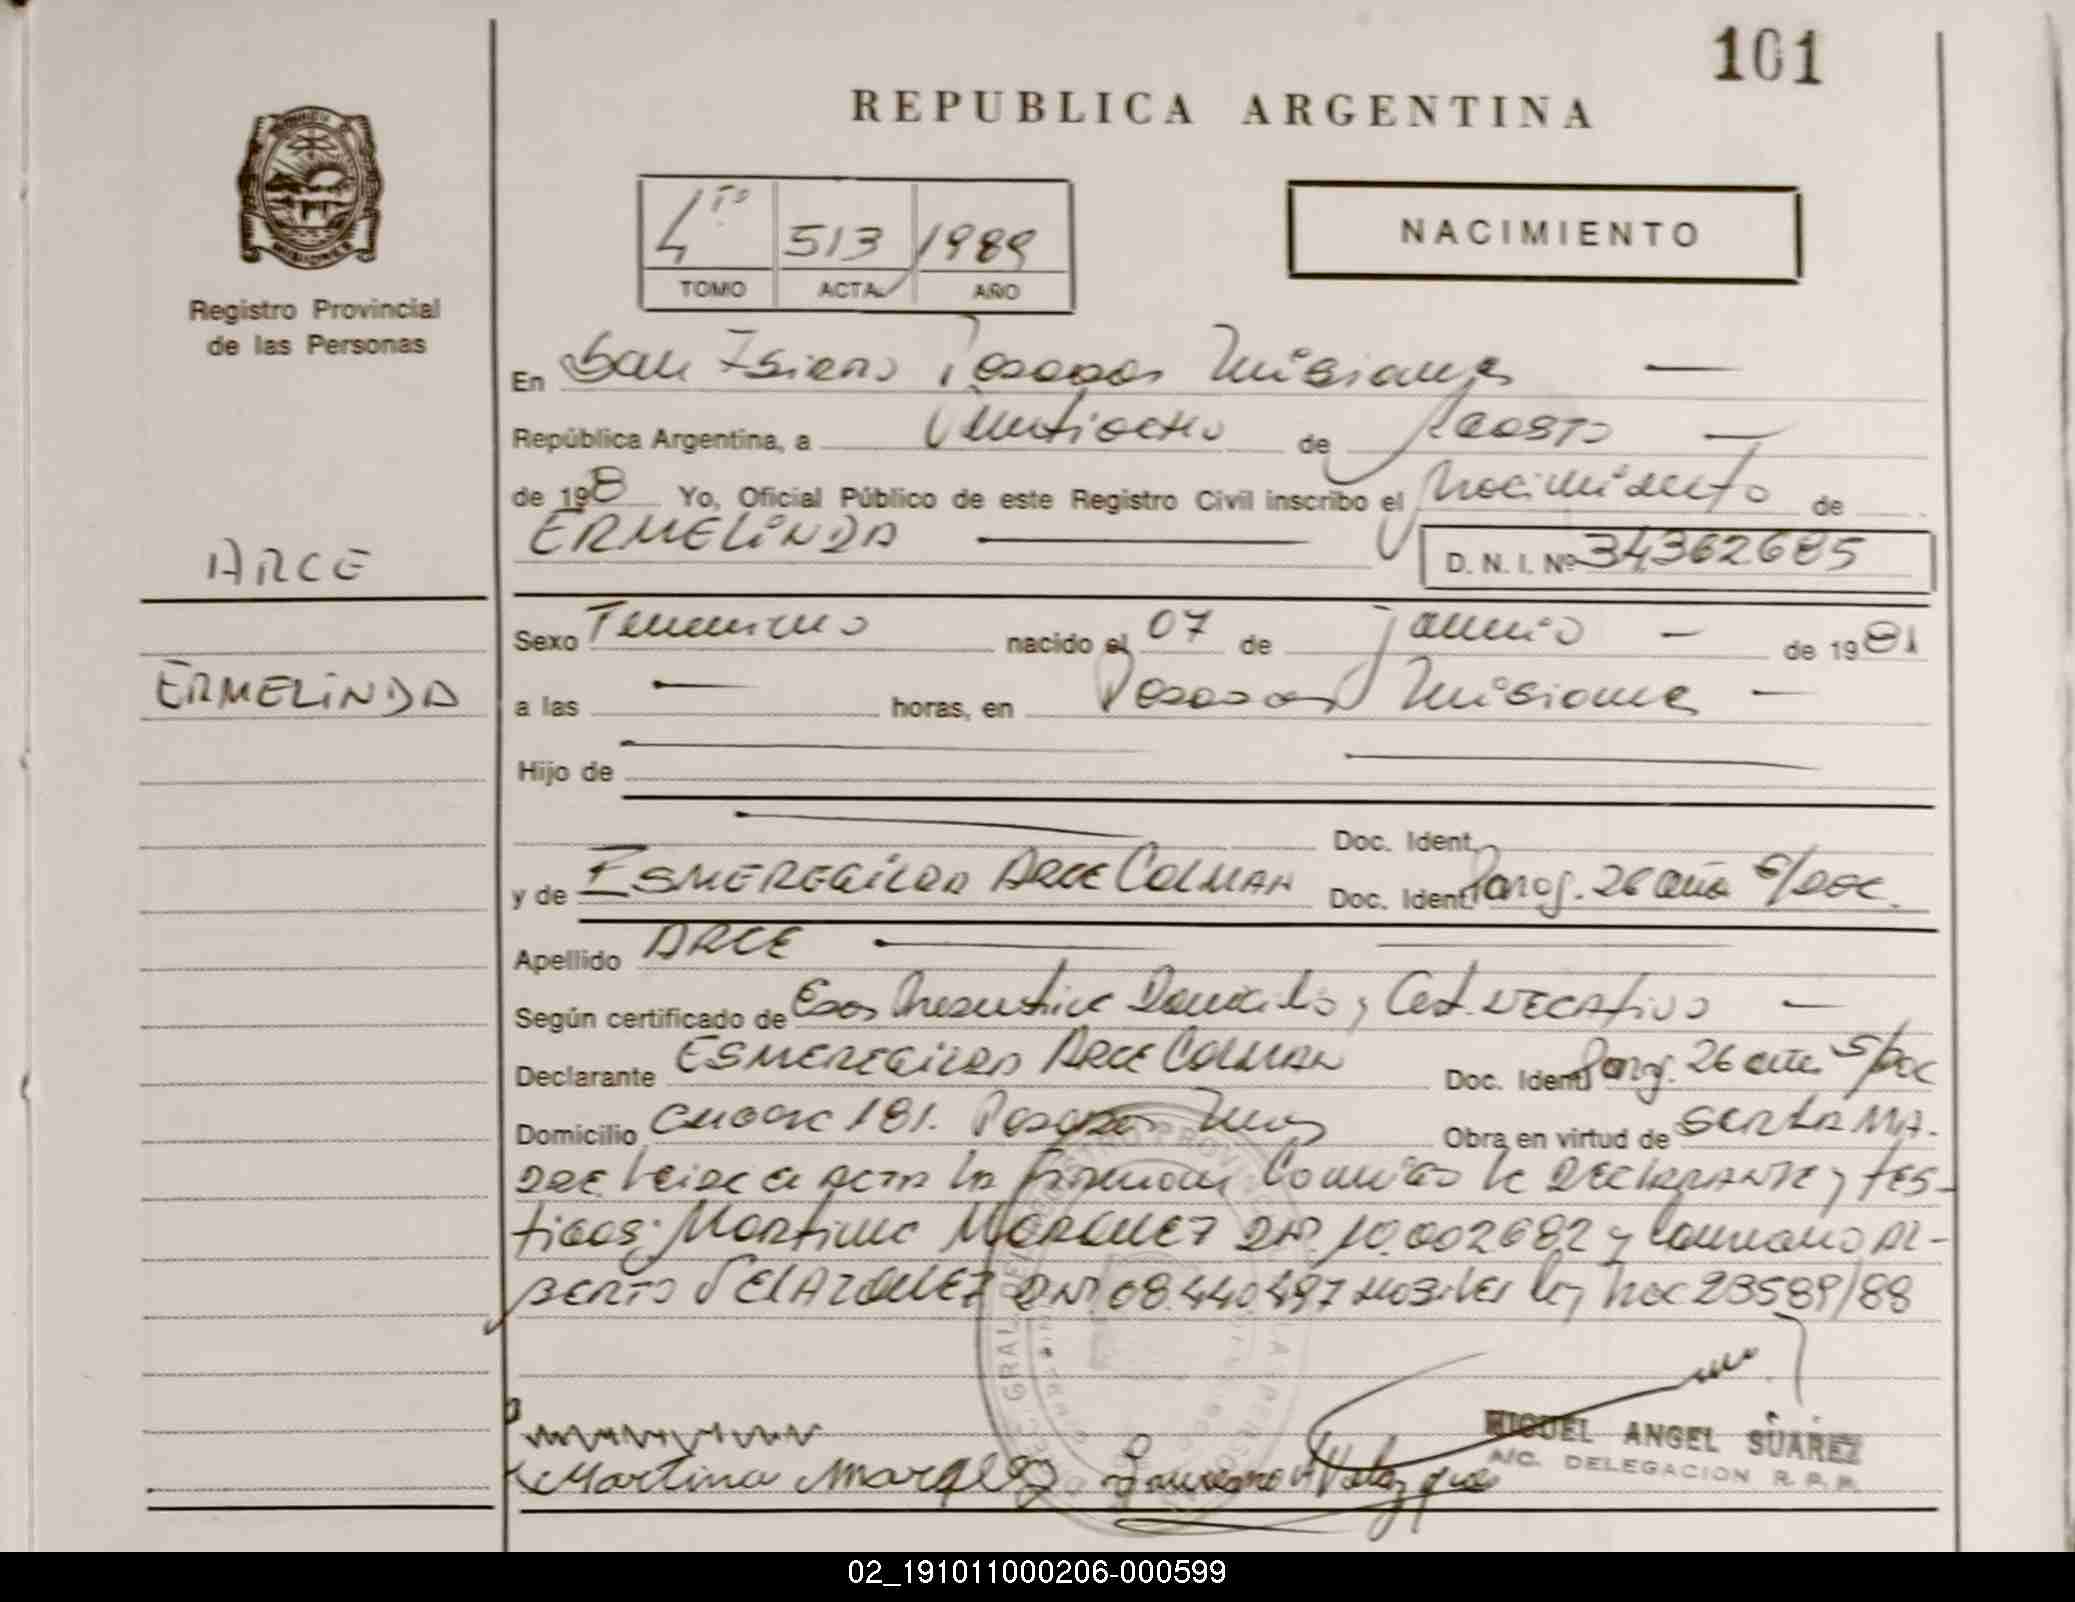 101
REPUBLICA ARGENTINA
4to 513 1989
TOMO ACTA AÑO
NACIMIENTO
Registro Provincial
de las Personas
En San Isidro Posadas Misiones —
República Argentina, a Veintiocho de Agosto —
de 198 Yo, Oficial Público de este Registro Civil inscribo el Nacimiento de
ERMELINDA D. N. I. Nº 34362685
ARCE
ERMELINDA
Sexo Femenino nacido el 07 de — de 1981
a las — horas, en Posadas Misiones —
Hijo de
Doc. Ident.
y de ESMEREGILDA ARCE COLMAN Doc. Ident. Parag. 26 años S/Doc.
Apellido ARCE
Según certificado de Domicilio y Cert. NEGATIVO —
Declarante ESMEREGILDA ARCE COLMAN Doc. Ident. Parag. 26 años S/Doc
Domicilio 181. Posadas Mnes Obra en virtud de SER LA MA-
DRE Leida el Acta la firman Conmigo la DECLARANTE y tes-
tigos: Martina MARQUEZ DNI. 10.002682 y AL-
BERTO VELAZQUEZ DNI. 08.440.497 ley Nac 23589/88
Martina Marquez
MIGUEL ANGEL SUAREZ
A/C. DELEGACION R. P. P.
02_191011000206-000599